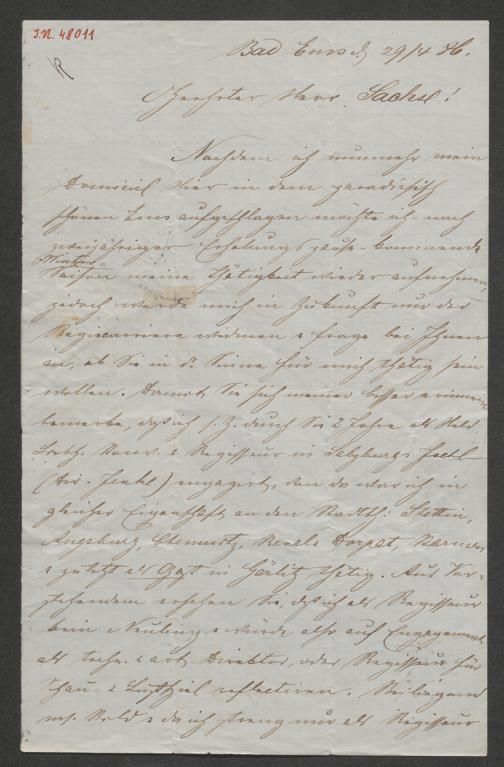 I.N. 48011
R
Bad Ems d. 29/4 86.
Geehrter Herr Sachse!
Nachdem ich nunmehr mein
Domicil hier in dem paradisisch
schönen Ems aufgeschlagen möchte ich nach
zweijähriger Erholungspause kommende
Winter-
Saison meine Thätigkeit wieder aufnehmen,
jedoch würde mich in Zukunft nur der
Regiecarriere widmen & frage bei Ihnen
an, ob Sie in d. Sinne für mich thätig sein
wollen. Damit Sie sich meiner besser erinnern
bemerke, daß ich s. Z. durch Sie 2 Jahre als Held
& Regisseur in Salzburg-Ischl
(Dir. ) engagirt, von da war ich in
gleicher Eigenschaft an den Stadtth. Stettin,
Augsburg, Chemnitz, Dorpat,
& zuletzt als Gast in Görlitz thätig. Aus Vor-
stehendem ersehen Sie, daß ich als Regisseur
kein Neuling & würde also auf Engagement
als techn. & art. Direktor, oder Regisseur für
Schau- & Lustspiel reflectiren. Beiliegend
& da ich streng nur als Regisseur